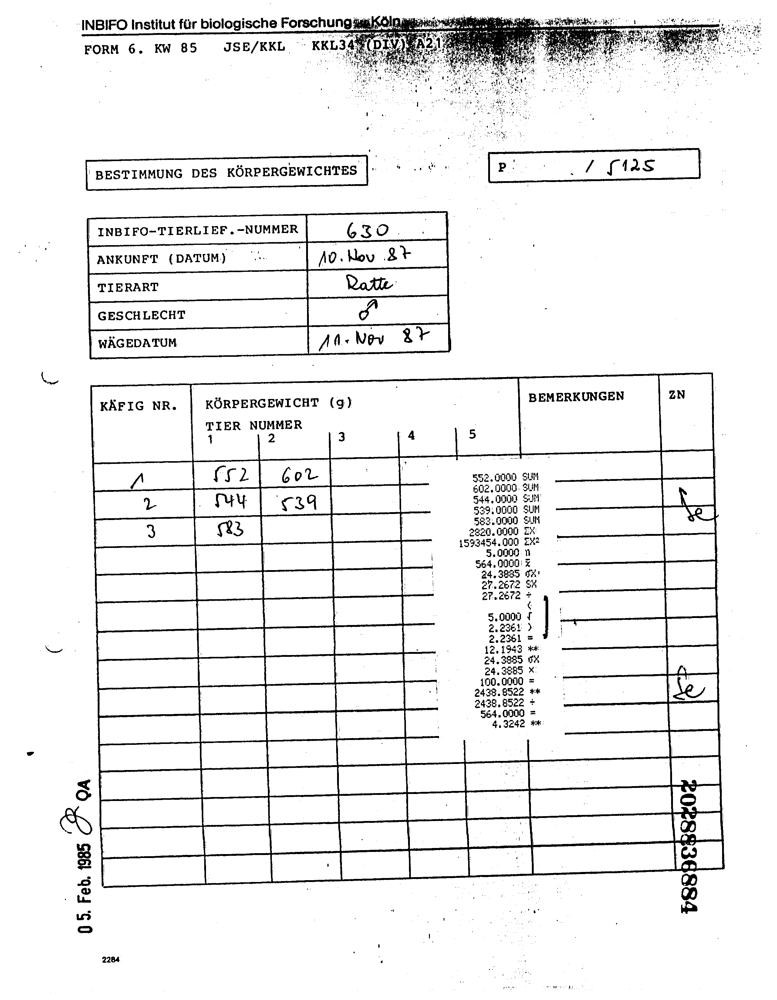 INBIFO Institut für biologische Forschung Köln
FORM 6. KW 85 JSE/KKL KKL34 (DIV) A21
BESTIMMUNG DES KÖRPERGEWICHTES
P / 5125
INBIFO-TIERLIEF.-NUMMER 630
ANKUNFT (DATUM) 10. Nov 87
TIERART Ratte
GESCHLECHT ♂
WÄGEDATUM 11. Nov 87
KÄFIG NR. KÖRPERGEWICHT (g) BEMERKUNGEN ZN
TIER NUMMER
1 2 3 4 5
1 552 602
2 544 539
3 583
552.0000 SUM
602.0000 SUM
544.0000 SUM
539.0000 SUM
583.0000 SUM
2820.0000 ΣX
1593454.000 ΣX²
5.0000 n
564.0000 x̄
24.3885 σX
27.2672 SX
27.2672 ÷
(
5.0000 √
2.2361 )
2.2361 =
12.1943 **
24.3885 σX
24.3885 ×
100.0000 =
2438.8522 **
2438.8522 ÷
564.0000 =
4.3242 **
05. Feb. 1985 QA
2028836884
2284